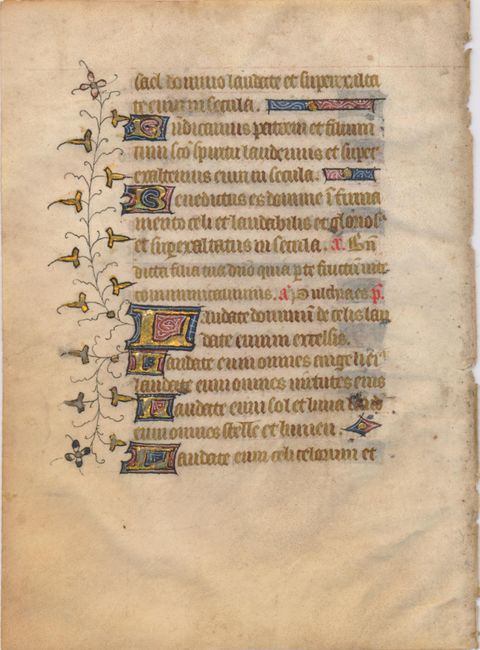 rael domino laudate et superexalta
te eum in secula.
Benedicamus patrem et filium
cum sco spiritu laudemus et super
exaltemus eum in secula.
Benedictus es domine i firma
mento celi et laudabilis et glorios
et superexaltatus in secula. a. Bn
dicta filia tua dno quia p te fructum
communicavimus. a Pulchra es. p.
Laudate dominum de celis lau
date eum in excelsis.
Laudate eum omnes angeli ei
laudate eum omnes virtutes eius
Laudate eum sol et luna
eum omnes stelle et lumen.
Laudate eum celi celorum et